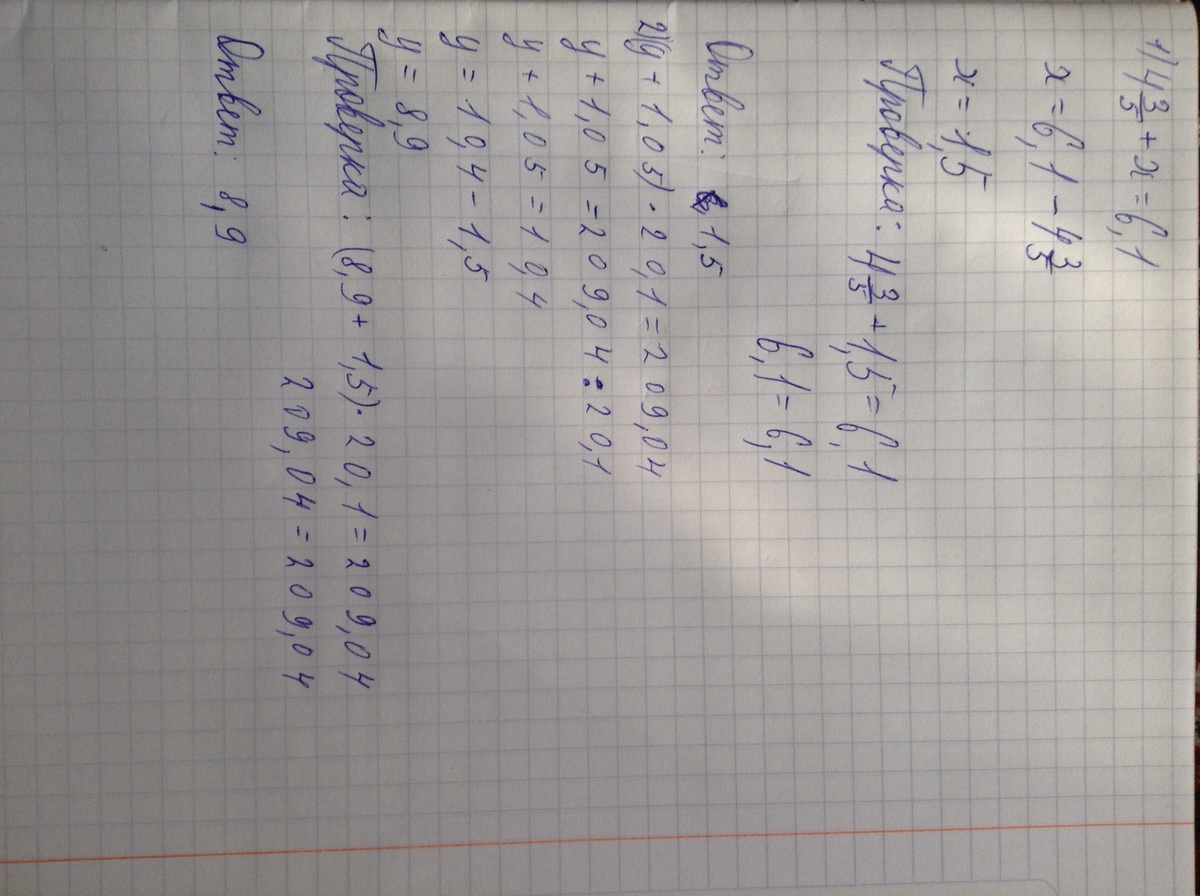 1) 4 3/5 + x = 6,1
x = 6,1 - 4 3/5
x = 1,5
Проверка: 4 3/5 + 1,5 = 6,1
6,1 = 6,1
Ответ: 1,5
2) (y + 1,05) · 20,1 = 209,04
y + 1,05 = 209,04 : 20,1
y + 1,05 = 10,4
y = 10,4 - 1,5
y = 8,9
Проверка: (8,9 + 1,5) · 20,1 = 209,04
209,04 = 209,04
Ответ: 8,9